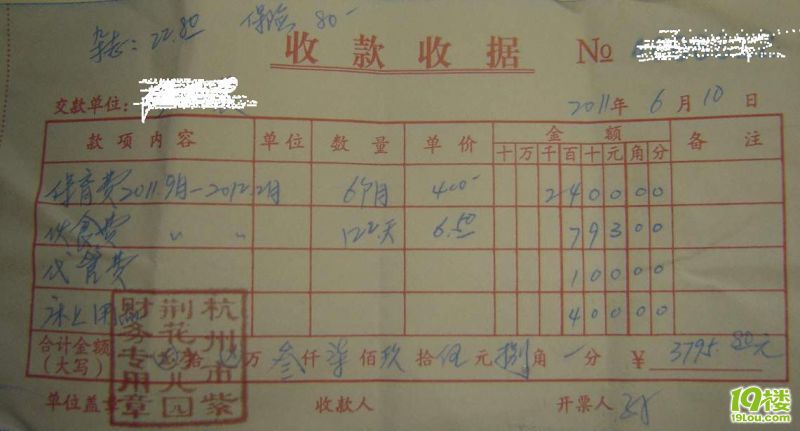 杂志：22.80 保险 80-
收款收据 No
交款单位： 2011年 6月 10日
款项内容 单位 数量 单价 金额 备注
十 万 千 百 十 元 角 分
保育费2011.9月-2012.2月 6个月 400- 2 4 0 0 0 0
伙食费 〃 〃 122天 6.50 7 9 3 0 0
代管费 1 0 0 0 0
床上用品 4 0 0 0 0
合计金额(大写) 拾 万 叁仟 柒佰 玖拾 伍元 捌角 一分 ¥ 3795.80元
单位盖章 收款人 开票人
杭州市紫
荆花幼儿园
财务专用章
19楼
19lou.com